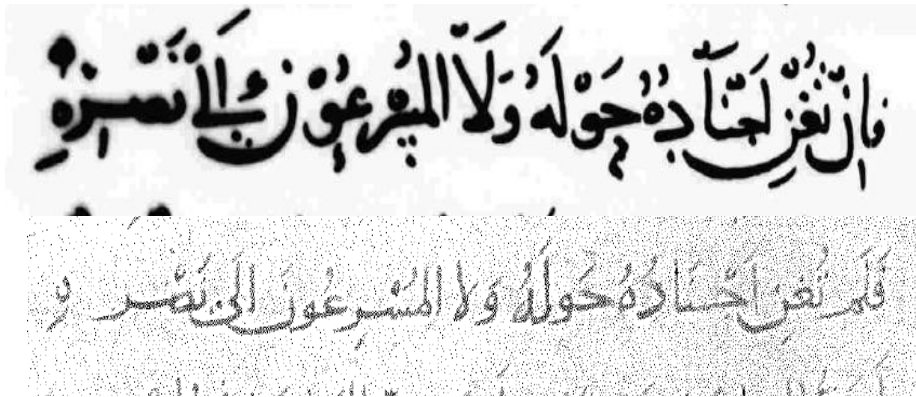 فإن تغن أجنّاده حوله ولا المسرعون إلى نصره
فَلَم تُغنِ اَجْنَادُهُ حَولَهُ وَلا المُسْرِعُونَ اِلَى نَصْرِهِ